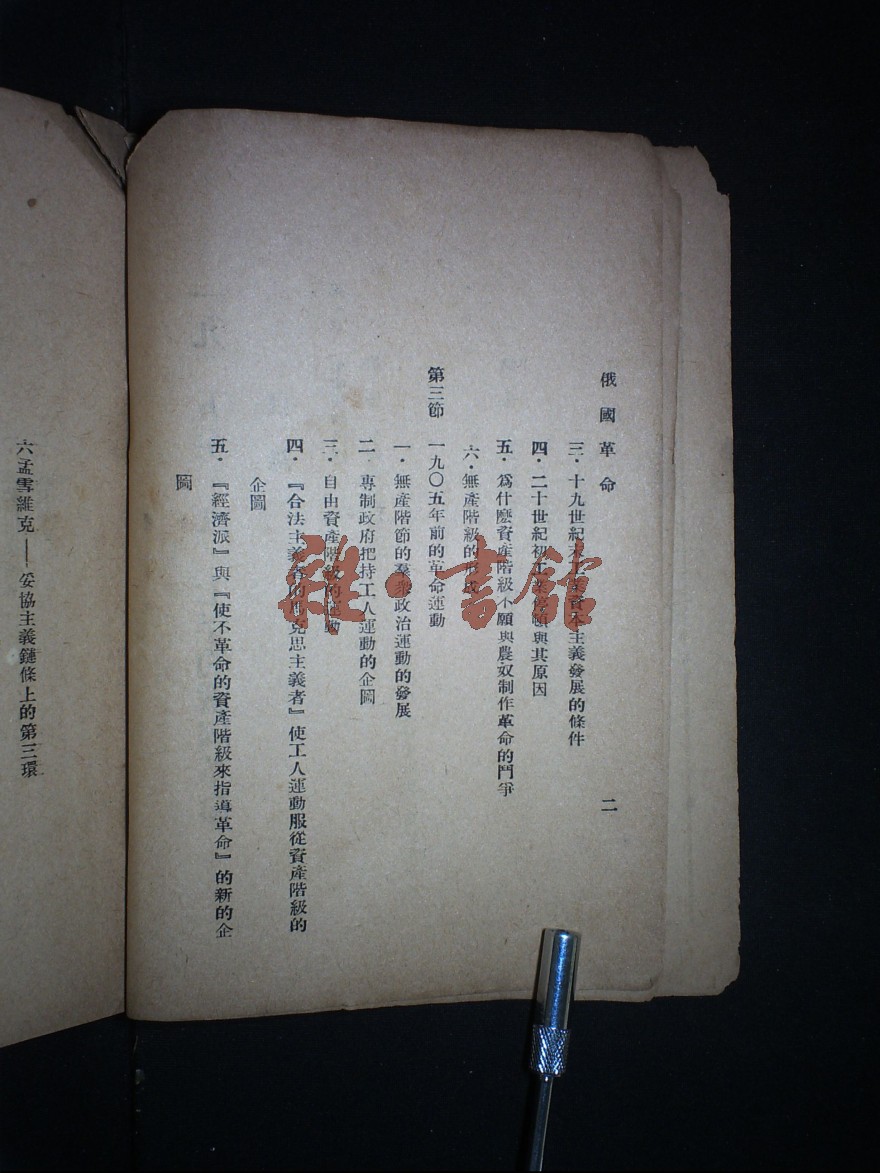 俄國革命
二
三・十九世紀末工業資本主義發展的條件
四・二十世紀初工業停頓與其原因
五・爲什麽資產階級不願與農奴制作革命的鬥爭
六・無產階級的形成
第三節 一九〇五年前的革命運動
一・無產階節的羣衆政治運動的發展
二・專制政府把持工人運動的企圖
三・自由資產階級的運動
四・『合法主義者的馬克思主義者』使工人運動服從資產階級的
企圖
五・『經濟派』與『使不革命的資產階級來指導革命』的新的企
圖
六孟雪維克——妥協主義鏈條上的第三環
雜・書館